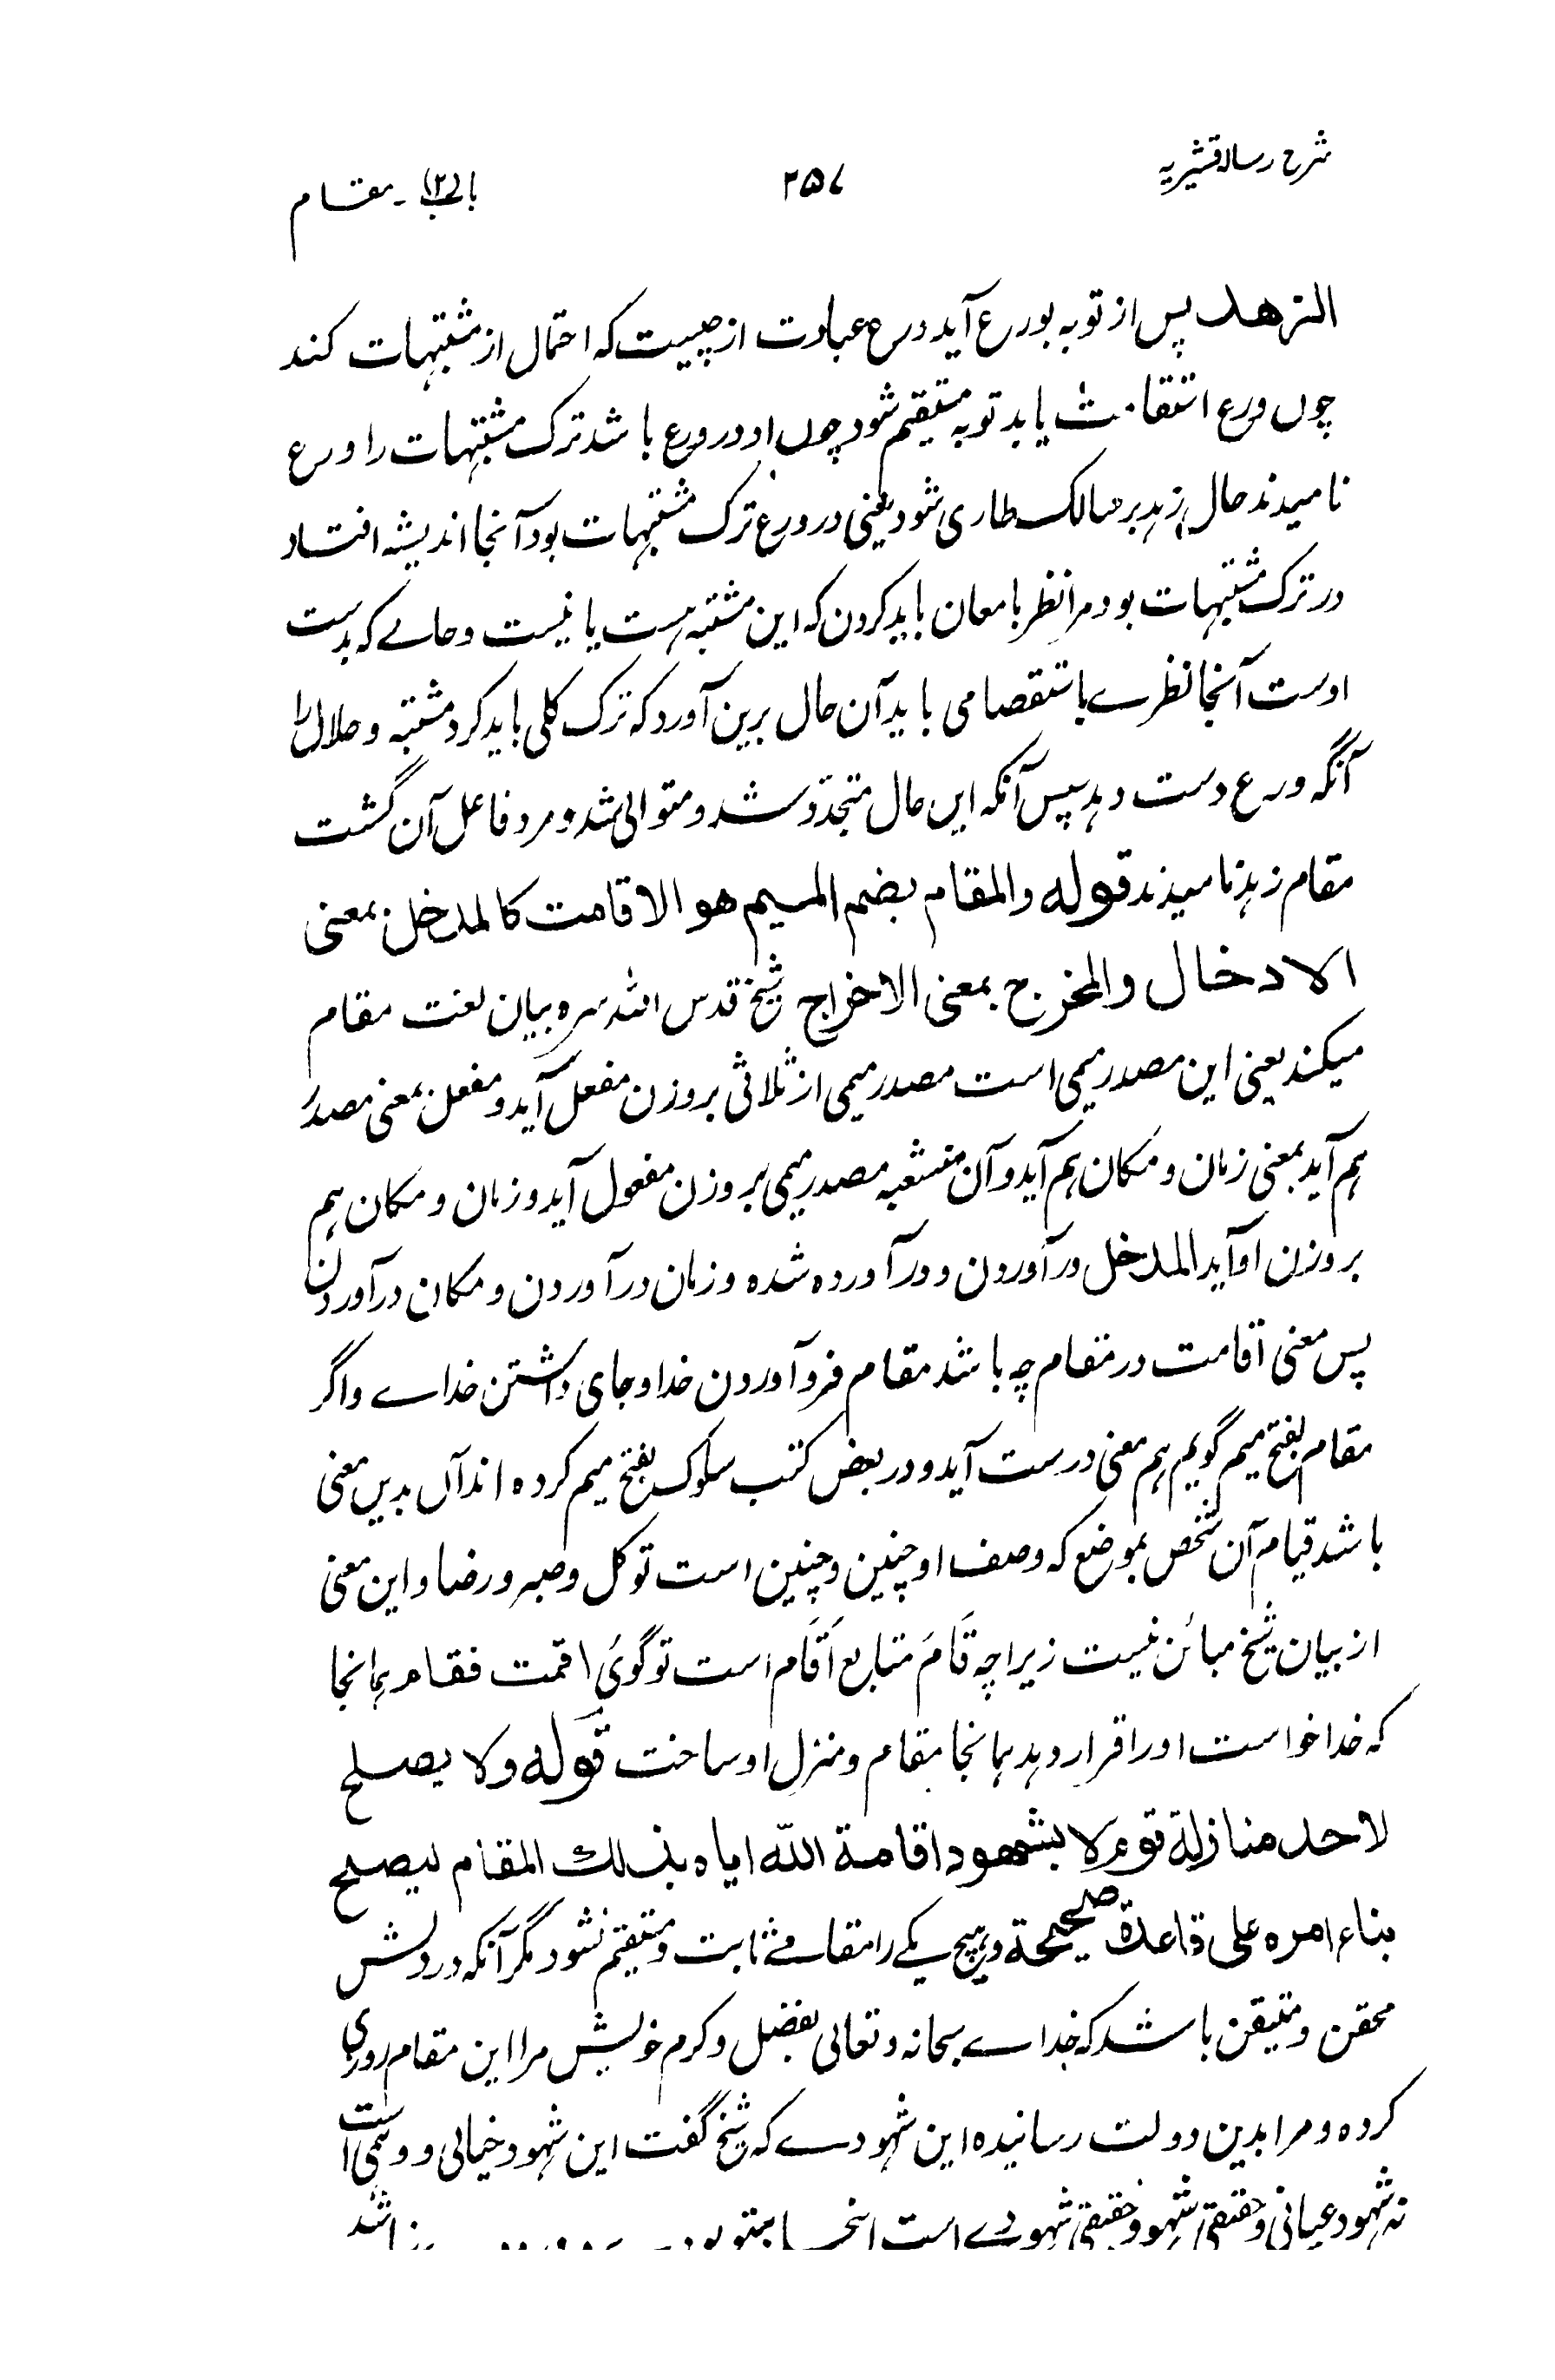 شرح رسالہ قشیریہ ۲۵۷ باب (۲) ـ مقام
الزهد پس از توبه بورع آید ورع عبارت از چیست که احتمال از مشتبہات کند
چوں ورع استقامت یابد توبه مستقیم شود چوں او در ورع باشد ترک مشتبہات را ورع
نامیدند حال زہد بر سالک طاری شود یعنی در ورع ترک مشتبہات بود آنجا اندیشه افتاد
در ترک مشتبہات بود مرا نظر بامعان باید کردن که این مشتبه هست یا نیست و حالے که بدست
اوست آنجا نظرے باستقصا می باید آن حال برین آورد که ترک کلی باید کرد مشتبه و حلال را
آنگه ورع دست دہد پس آنکه ایں حال متجدّد شد و متوالی شد و مرد فاعل آن گشت
مقام زہد نامیدند قوله والمقام بضم المیم هو الاقامت کالمدخل بمعنی
الادخال والمخرج بمعنی الاخراج شیخ قدس الله سره بیان لغت مقام
میکند یعنی این مصدر میمی است مصدر میمی از ثلاثی بر وزن مفعل آید و مفعل بمعنی مصدر
ہم آید بمعنی زمان و مکان ہم آید و آن منشعبه مصدر میمی بر وزن مفعول آید و زمان و مکان ہم
بر وزن او آید المدخل در آوردن و در آورده شده و زمان در آوردن و مکان در آوردن
پس معنی اقامت در مقام چه باشد مقام فرو آوردن خدا و جای داشتن خداے و اگر
مقام بفتح میم گویم ہم معنی درست آید و در بعض کتب سلوک بفتح میم کرده اند آں بدیں معنی
باشد قیام آن شخص بموضع که وصف او چنین و چنین است توکل و صبر و رضا و این معنی
از بیان شیخ مبائن نیست زیراچه قَامَ متابع اَقَام است تو گوئی اقمت فقام ہمانجا
که خدا خواست او را قرار دہد ہمانجا مقام و منزل او ساخت قوله ولا یصلح
لاحد منازلة قوم لا بشهود اقامة الله ایاه بذلك المقام لیصلح
بناء امره علی قاعدة صحیحة و ہیچ یکے را مقامے ثابت و مستقیم نشود مگر آنکه در دلش
محقن و متیقن باشد که خداے سبحانه و تعالی بفضل و کرم خویش مرا این مقام روزی
کرده و مرا بدین دولت رسانیده این شہودے که شیخ گفت این شہود خیالی و وہمی است
نه شہود عیانی و حقیقی شہود حقیقی شہودے است